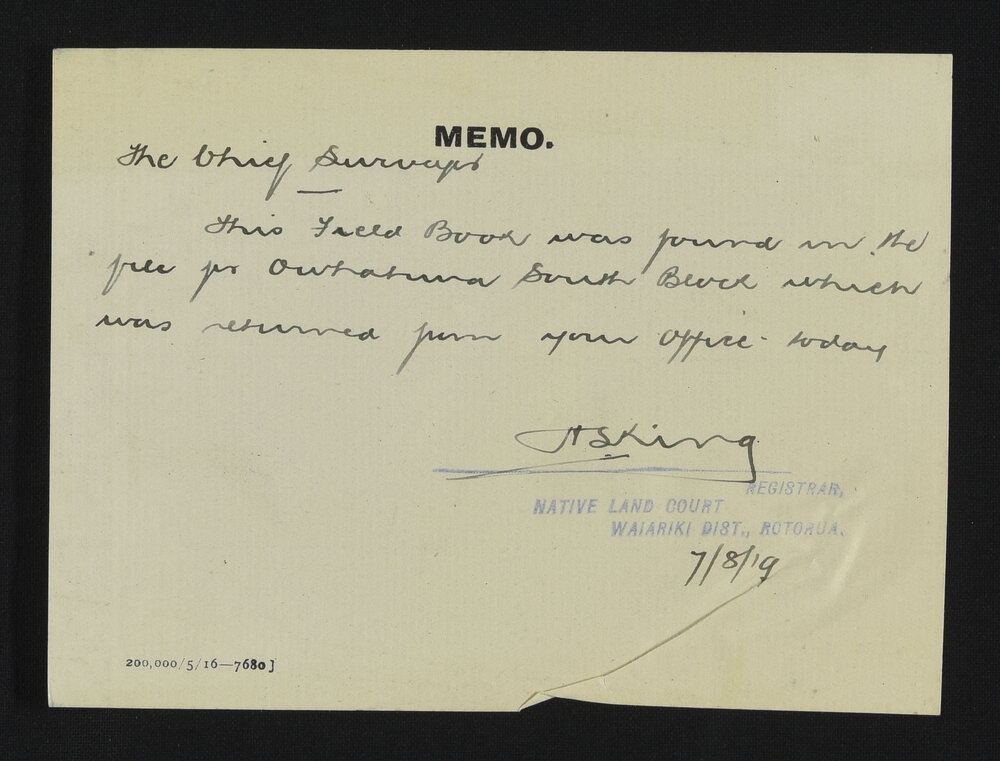 MEMO.
The Chief Surveyor
This Field Book was found in the
file for Owhatiura South Block which
was returned from your Office today
HSKing
REGISTRAR,
NATIVE LAND COURT
WAIARIKI DIST., ROTORUA.
7/8/19
200,000/5/16—7680]